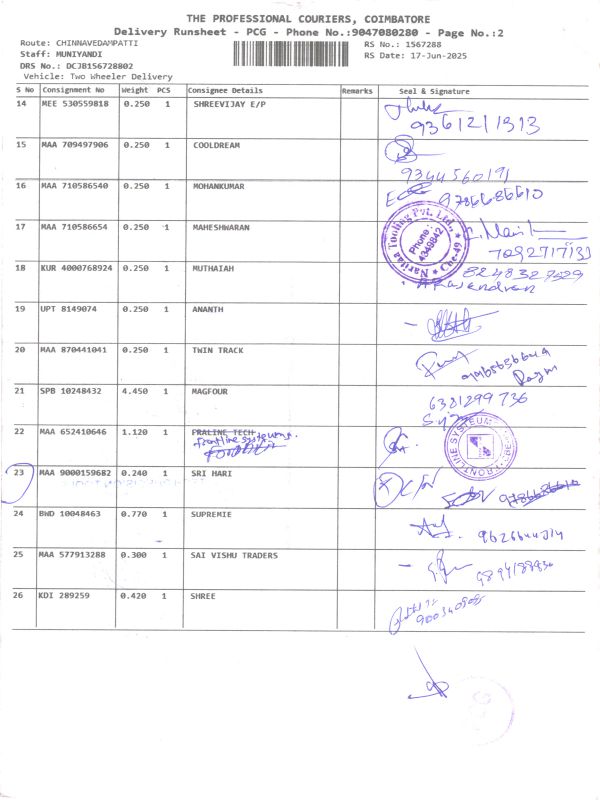 THE PROFESSIONAL COURIERS, COIMBATORE
Delivery Runsheet - PCG - Phone No.:9047080280 - Page No.:2
Route: CHINNAVEDAMPATTI
RS No.: 1567288
Staff: MUNIYANDI
RS Date: 17-Jun-2025
DRS No.: DCJB156728802
Vehicle: Two Wheeler Delivery
S No Consignment No Weight PCS Consignee Details Remarks Seal & Signature
14 MEE 530559818 0.250 1 SHREEVIJAY E/P
9361211313
15 MAA 709497906 0.250 1 COOLDREAM
9344560191
16 MAA 710586540 0.250 1 MOHANKUMAR
9786686610
17 MAA 710586654 0.250 1 MAHESHWARAN
Nartjaa Tooling Pvt. Ltd., Cbe-49
Phone: 4349842
18 KUR 4000768924 0.250 1 MUTHAIAH
8248327529
A Rajendran
19 UPT 8149074 0.250 1 ANANTH
20 MAA 870441041 0.250 1 TWIN TRACK
21 SPB 10248432 4.450 1 MAGFOUR
6381299736
22 MAA 652410646 1.120 1 FRALINE TECH
frontline systeums.
FRONTLINE SYSTEUMS CBE
23 MAA 9000159682 0.240 1 SRI HARI
9786686610
24 BWD 10048463 0.770 1 SUPREMIE
25 MAA 577913288 0.300 1 SAI VISHU TRADERS
26 KDI 289259 0.420 1 SHREE